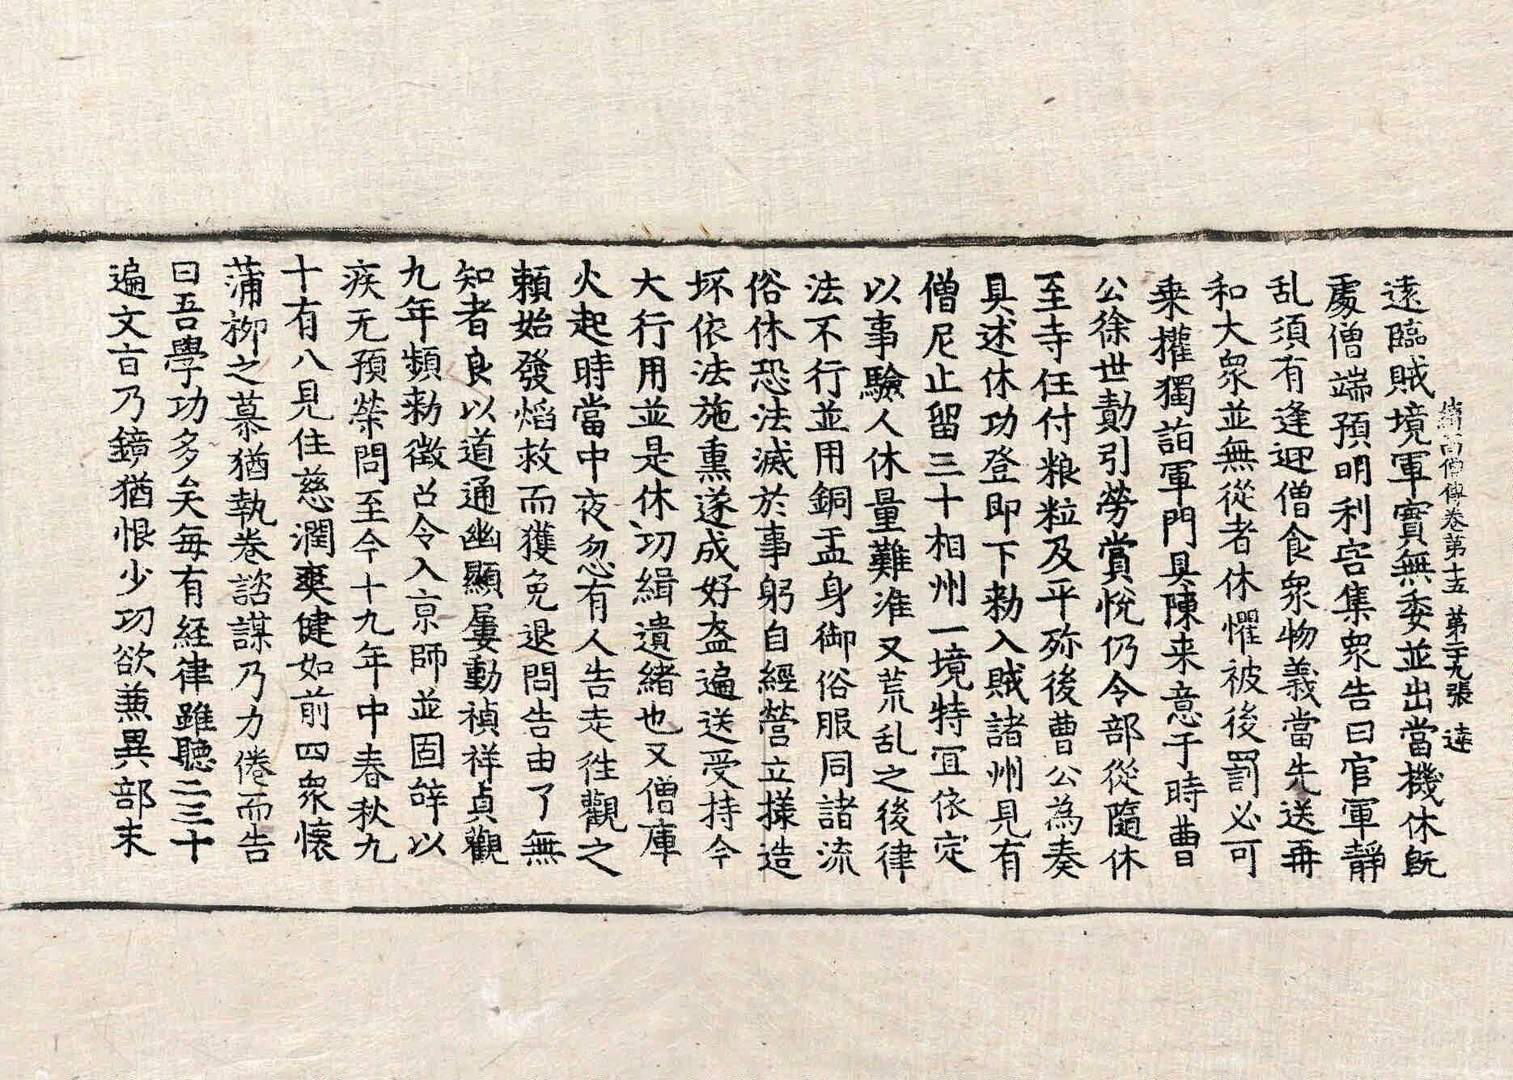 續高僧傳卷第十五 第二十九張 遠
遠臨賊境軍實無委並出當機休既
處僧端預明利害集衆告曰官軍靜
乱須有逢迎僧食衆物義當先送再
和大衆並無從者休懼被後罰必可
乗權獨詣軍門具陳来意于時曹
公徐世勣引勞賞悅仍令部從隨休
至寺任付粮粒及平殄後曹公為奏
具述休功登即下勑入賊諸州見有
僧尼止留三十相州一境特冝依定
以事驗人休量難准又荒乱之後律
法不行並用銅盂身御俗服同諸流
俗休恐法滅於事躬自經營立樣造
坏依法施熏遂成好盋遍送受持今
大行用並是休功緝遺緒也又僧庫
火起時當中夜忽有人告走徃觀之
賴始發焰救而獲免退問告由了無
知者良以道通幽顯屢動禎祥貞觀
九年頻勑徵召令入京師並固辝以
疾无預榮問至今十九年中春秋九
十有八見住慈潤爽健如前四衆懐
蒲柳之慕猶執卷諮謀乃力倦而告
曰吾學功多矣每有経律雖聽二三十
遍文旨乃鏡猶恨少功欲兼異部未